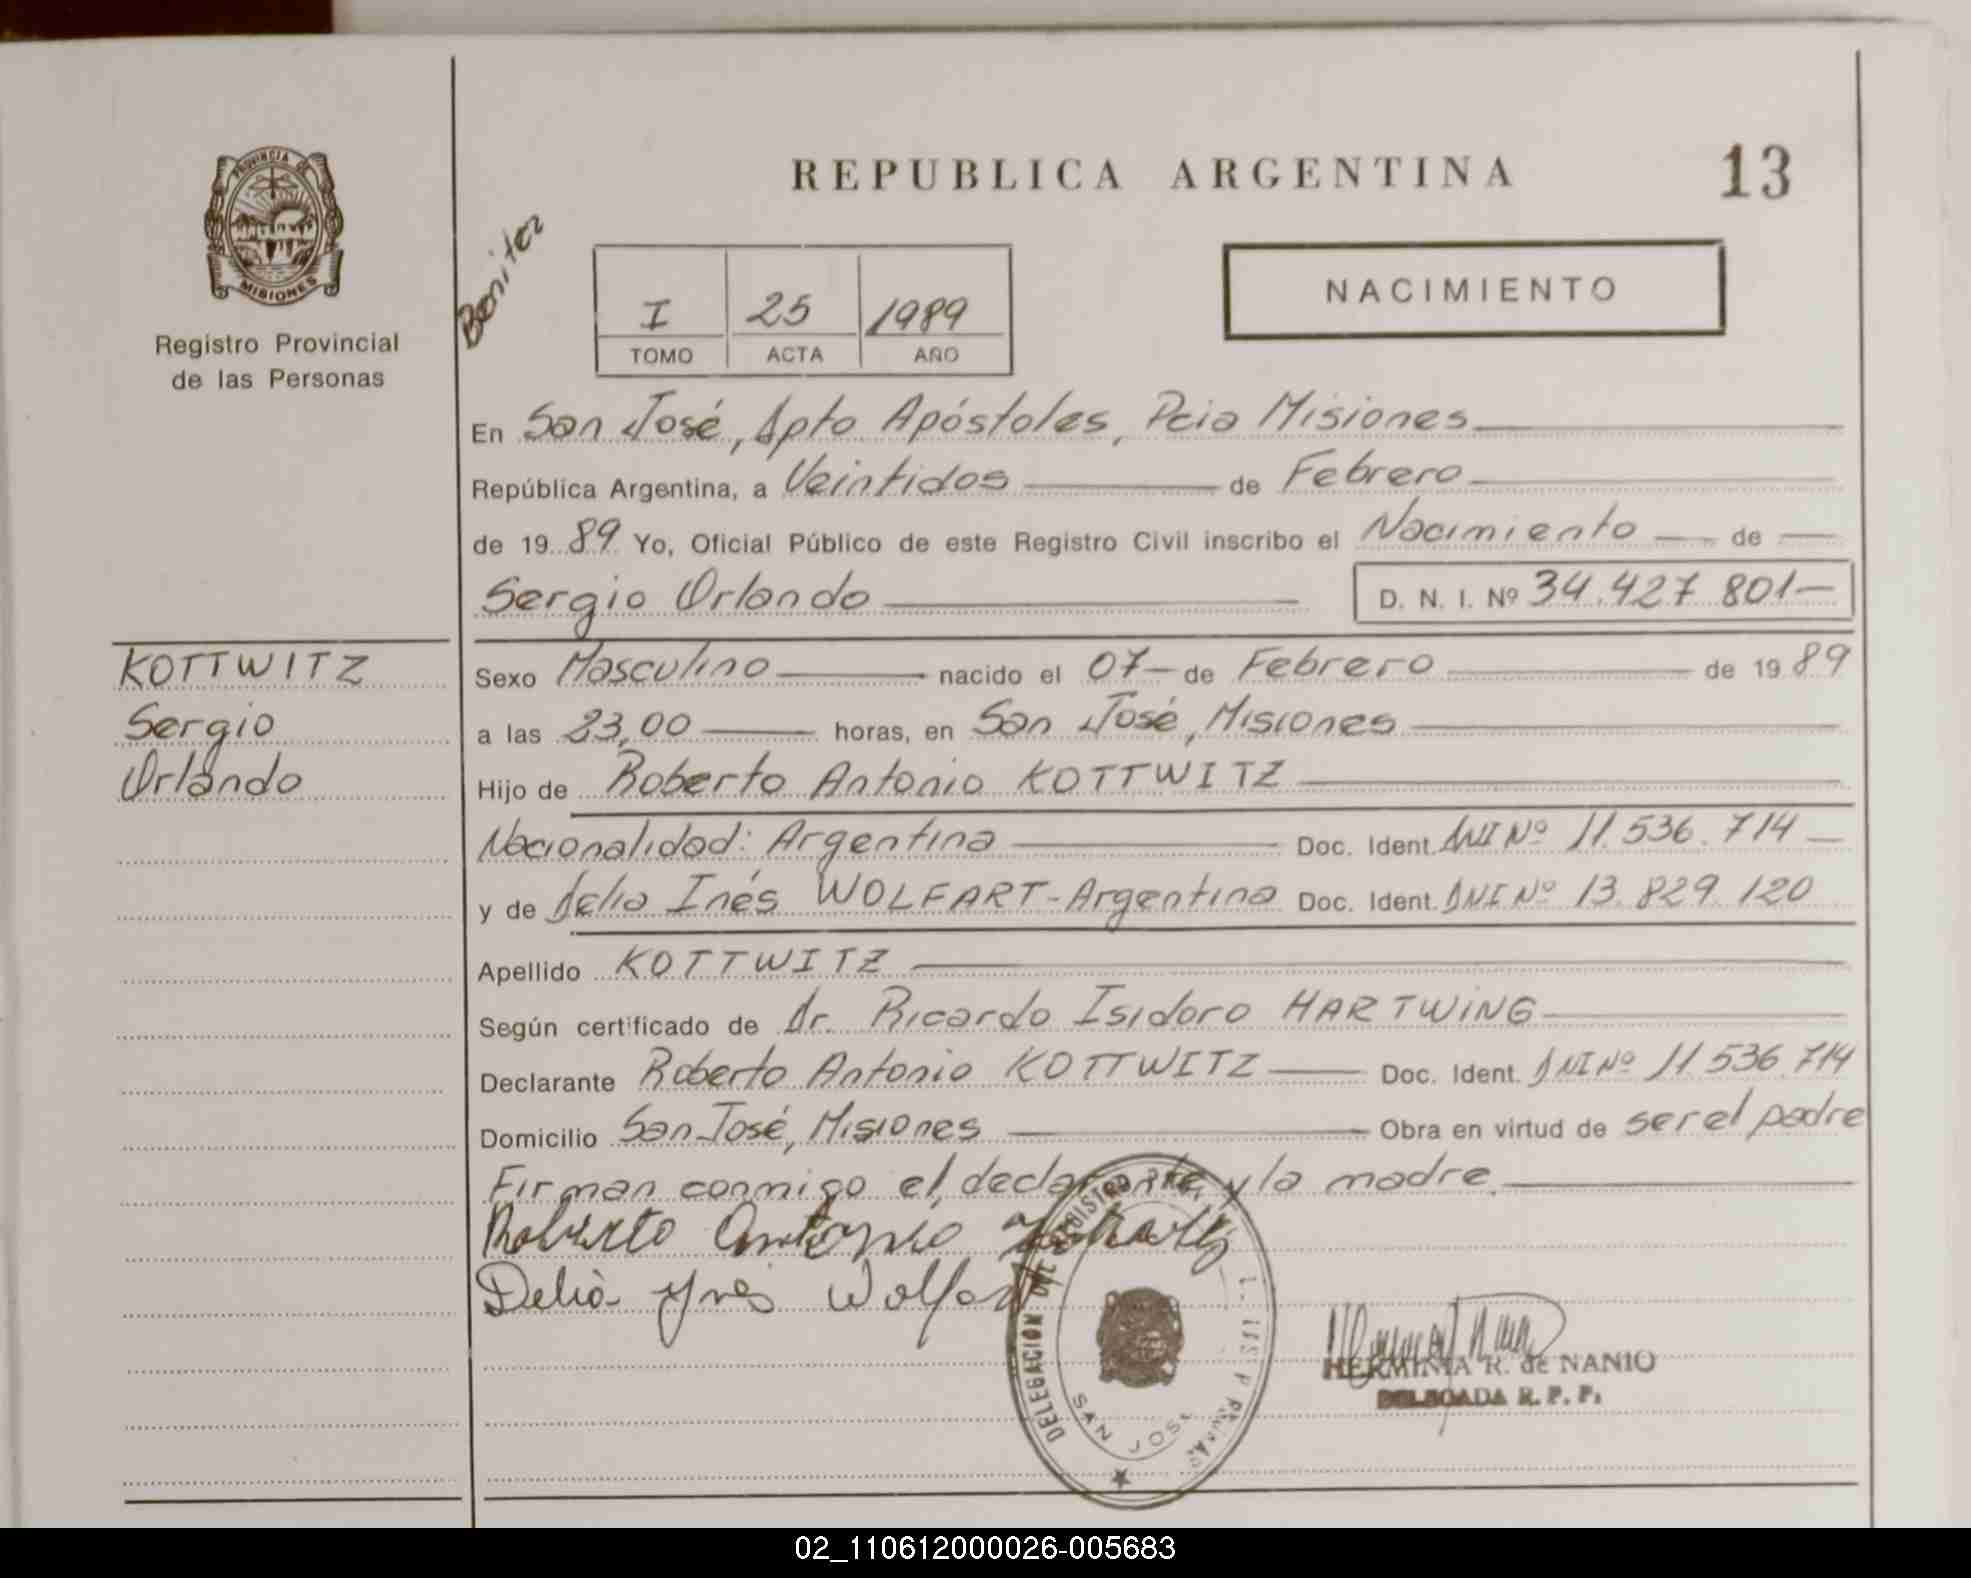 REPUBLICA ARGENTINA
13
PROVINCIA DE
MISIONES
Registro Provincial
de las Personas
Benitez
I 25 1989
TOMO ACTA AÑO
NACIMIENTO
En San José, Dpto Apóstoles, Pcia Misiones
República Argentina, a Veintidos de Febrero
de 1989 Yo, Oficial Público de este Registro Civil inscribo el Nacimiento de
Sergio Orlando D. N. I. Nº 34.427.801
KOTTWITZ
Sergio
Orlando
Sexo Masculino nacido el 07 de Febrero de 1989
a las 23,00 horas, en San José, Misiones
Hijo de Roberto Antonio KOTTWITZ
Nacionalidad: Argentina Doc. Ident. DNI Nº 11.536.714
y de Delia Inés WOLFART-Argentina Doc. Ident. DNI Nº 13.829.120
Apellido KOTTWITZ
Según certificado de Dr. Ricardo Isidoro HARTWING
Declarante Roberto Antonio KOTTWITZ Doc. Ident. DNI Nº 11.536.714
Domicilio San José, Misiones Obra en virtud de ser el padre
Firman conmigo el declarante y la madre.
Roberto Antonio
Delia Ynes Wolfart
DELEGACION DEL REGISTRO
SAN JOSE
HERMINIA R. de NANIO
DELEGADA R. P. P.
02_110612000026-005683